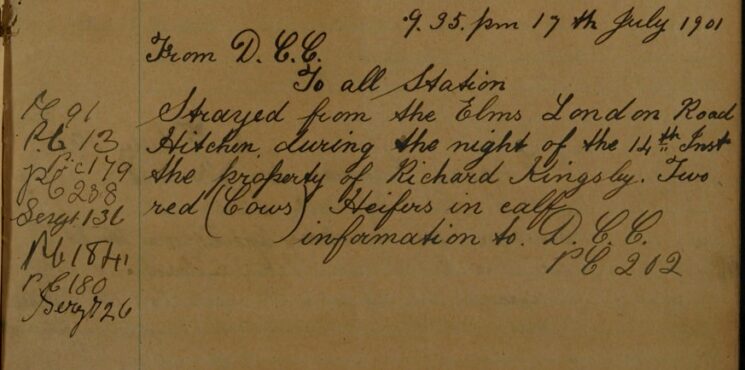 9.35. pm 17th July 1901
From D. C. C.
To all Station
Strayed from the Elms London Road
Hitchen, during the night of the 14th Inst
the property of Richard Kingsby. Two
red (Cows) Heifers in calf
information to. D. C. C.
PC 202
91
P.C 13
P.C 179
PC 238
Sergt 136
PC 184
P.C 180
Sergt 26